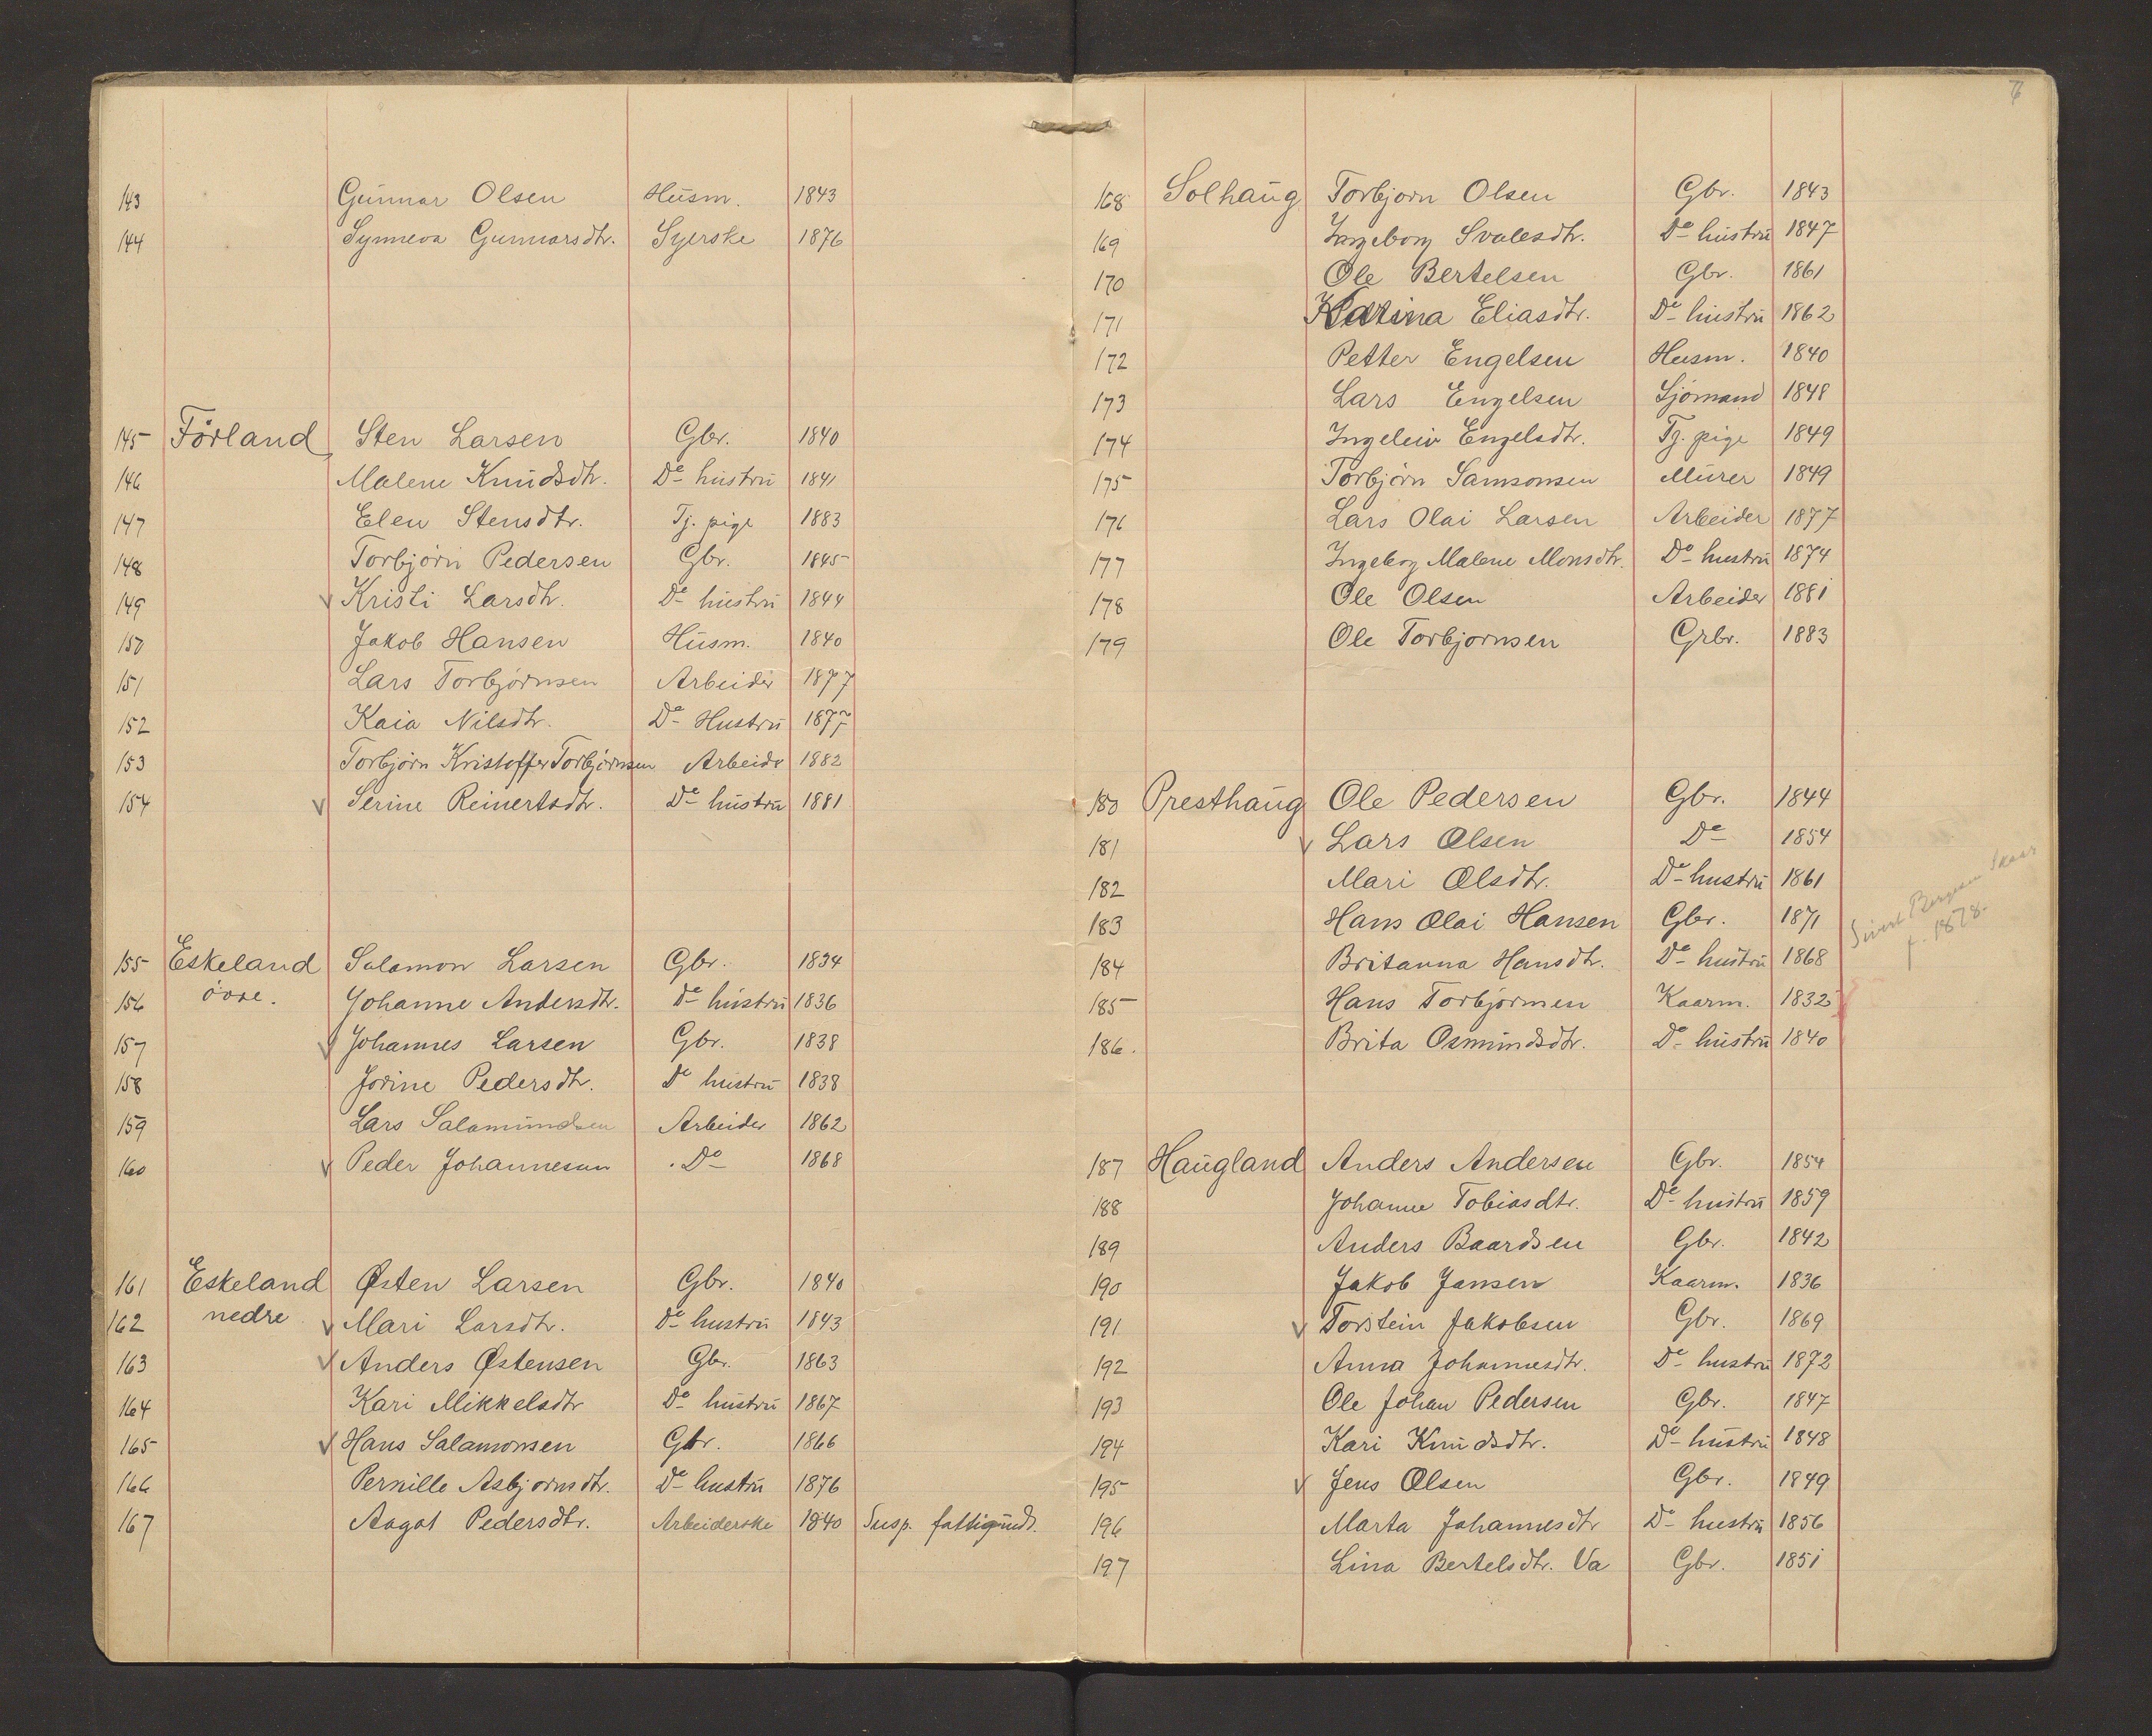 143 Gunnar Olsen Husm. 1843
144 Synneva Gunnarsdtr. Syerske 1876
145 Förland Sten Larsen Gbr. 1840
146 Malene Knudsdtr. De hustru 1841
147 Elen Stensdtr. Tj. pige 1883
148 Torbjörn Pedersen Gbr. 1845
149 Kristi Larsdtr. De hustru 1844
150 Jakob Hansen Husm. 1840
151 Lars Torbjörnsen Arbeider 1877
152 Kaia Nilsdtr. De Hustru 1877
153 Torbjörn Kristoffer Torbjörnsen Arbeide 1882
154 Serine Reinertsdtr. De hustru 1881
155 Eskeland Salamon Larsen Gbr. 1834
156 övre. Johanne Andersdtr. De hustru 1836
157 Johannes Larsen Gbr. 1838
158 Jorine Pedersdtr. De hustru 1838
159 Lars Salamundsen Arbeider 1862
160 Peder Johannesen Do 1868
161 Eskeland Østen Larsen Gbr. 1840
162 nedre Mari Larsdtr. De hustru 1843
163 Anders Østensen Gbr. 1863
164 Kari Mikkelsdtr De hustru 1867
165 Hans Salamonsen Gbr. 1866
166 Pernille Asbjornsdtr. De hustru 1876
167 Aagot Pedersdtr. Arbeiderske 1840 Susp. fattigunds.
7
168 Solhaug Torbjorn Olsen Gbr. 1843
169 Ingeborg Svalesdtr. De hustru 1847
170 Ole Bertelsen Gbr. 1861
171 Katina Eliasdtr. De hustru 1862
172 Petter Engelsen Husm. 1840
173 Lars Engelsen Sjömand 1848
174 Ingeleiv Engelsdtr. Tj. pige 1849
175 Torbjörn Samsonsen Murer 1849
176 Lars Olai Larsen Arbeider 1877
177 Ingeborg Malene Monsdtr. De hustru 1874
178 Ole Olsen Arbeider 1881
179 Ole Torbjornsen Grbr. 1883
180 Presthaug Ole Pedersen Gbr. 1844
181 Lars Olsen De 1854
182 Mari Olsdtr. De hustru 1861
183 Hans Olai Hansen Gbr. 1871
184 Britanna Hansdtr. De hustru 1868
185 Hans Torbjörnsen Kaarm. 1832
186. Brita Osmundsdtr. De hustru 1840
Sivert Bergesen Skaar
f. 1878.
187 Haugland Anders Andersen Gbr. 1854
188 Johanne Tobiasdtr. De hustru 1859
189 Anders Baardsen Gbr. 1842
190 Jakob Jansen Kaarm. 1836
191 Torstein Jakobsen Gbr. 1869
192 Anna Johannesdtr. De hustru 1872
193 Ole Johan Pedersen Gbr. 1847
194 Kari Knudsdtr. De hustru 1848
195 Jens Olsen Gbr. 1849
196 Marta Johannesdtr De hustru 1856
197 Lina Bertelsdtr. Va Gbr. 1851